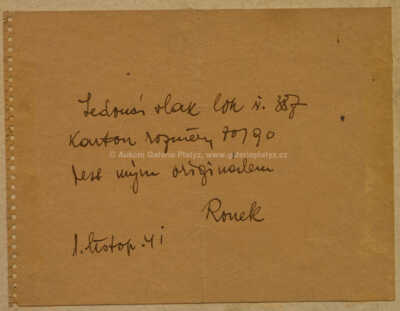 Jedoucí vlak lok č. 387
Karton rozměry 70/90
© Aukční Galerie Platýz, www.galerieplatyz.cz
jest mým originálem
Ronek
1. listop. 41